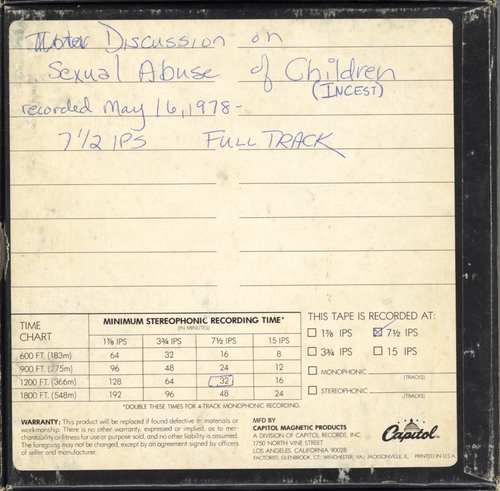 Discussion on
Sexual Abuse of Children
(INCEST)
recorded May 16, 1978-
7 1/2 IPS FULL TRACK
TIME CHART
MINIMUM STEREOPHONIC RECORDING TIME*
(IN MINUTES)
1⅞ IPS 3¾ IPS 7½ IPS 15 IPS
600 FT. (183m) 64 32 16 8
900 FT. (275m) 96 48 24 12
1200 FT. (366m) 128 64 32 16
1800 FT. (548m) 192 96 48 24
*DOUBLE THESE TIMES FOR 4-TRACK MONOPHONIC RECORDING.
THIS TAPE IS RECORDED AT:
1⅞ IPS 7½ IPS
3¾ IPS 15 IPS
MONOPHONIC
(TRACKS)
STEREOPHONIC
(TRACKS)
WARRANTY: This product will be replaced if found defective in materials or
workmanship. There is no other warranty, expressed or implied, as to mer-
chantability or fitness for use or purpose sold, and no other liability is assumed.
The foregoing may not be changed, except by an agreement signed by officers
of seller and manufacturer.
MFD BY
CAPITOL MAGNETIC PRODUCTS
A DIVISION OF CAPITOL RECORDS, INC.
1750 NORTH VINE STREET
LOS ANGELES, CALIFORNIA 90028
FACTORIES: GLENBROOK, CT; WINCHESTER, VA; JACKSONVILLE, IL.
Capitol
PRINTED IN U.S.A.